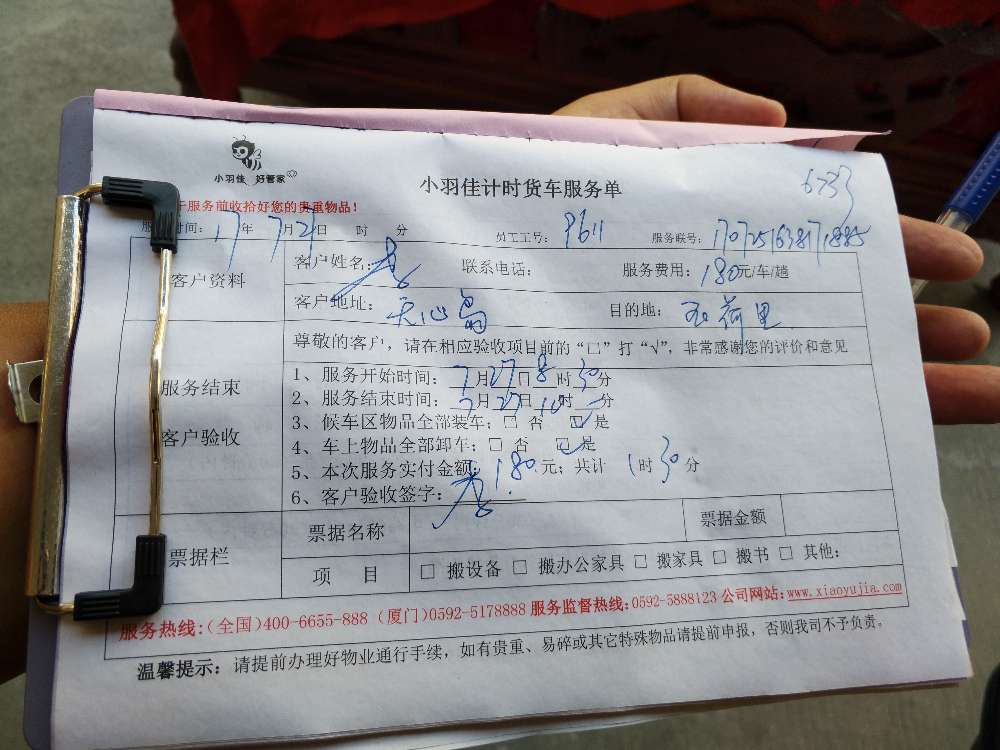 小羽佳 好管家
小羽佳计时货车服务单
6733
于服务前收拾好您的贵重物品!
时间: 17年 7月27日 时 分 员工工号: P611 服务联号:
客户资料
客户姓名: 联系电话: 服务费用: 180元/车/趟
客户地址: 天心岛 目的地: 石荷里
尊敬的客户,请在相应验收项目前的“口”打“√”,非常感谢您的评价和意见
服务结束
客户验收
1、服务开始时间: 7月27日8时30分
2、服务结束时间: 7月27日10时 分
3、候车区物品全部装车: □ 否 ☑ 是
4、车上物品全部卸车: □ 否 ☑ 是
5、本次服务实付金额: 180元; 共计 1时30分
6、客户验收签字:
票据栏
票据名称 票据金额
项 目 □ 搬设备 □ 搬办公家具 □ 搬家具 □ 搬书 □ 其他:
服务热线:(全国)400-6655-888 (厦门)0592-5178888 服务监督热线:0592-5888123 公司网站:www.xiaoyujia.com
温馨提示: 请提前办理好物业通行手续,如有贵重、易碎或其它特殊物品请提前申报,否则我司不予负责。